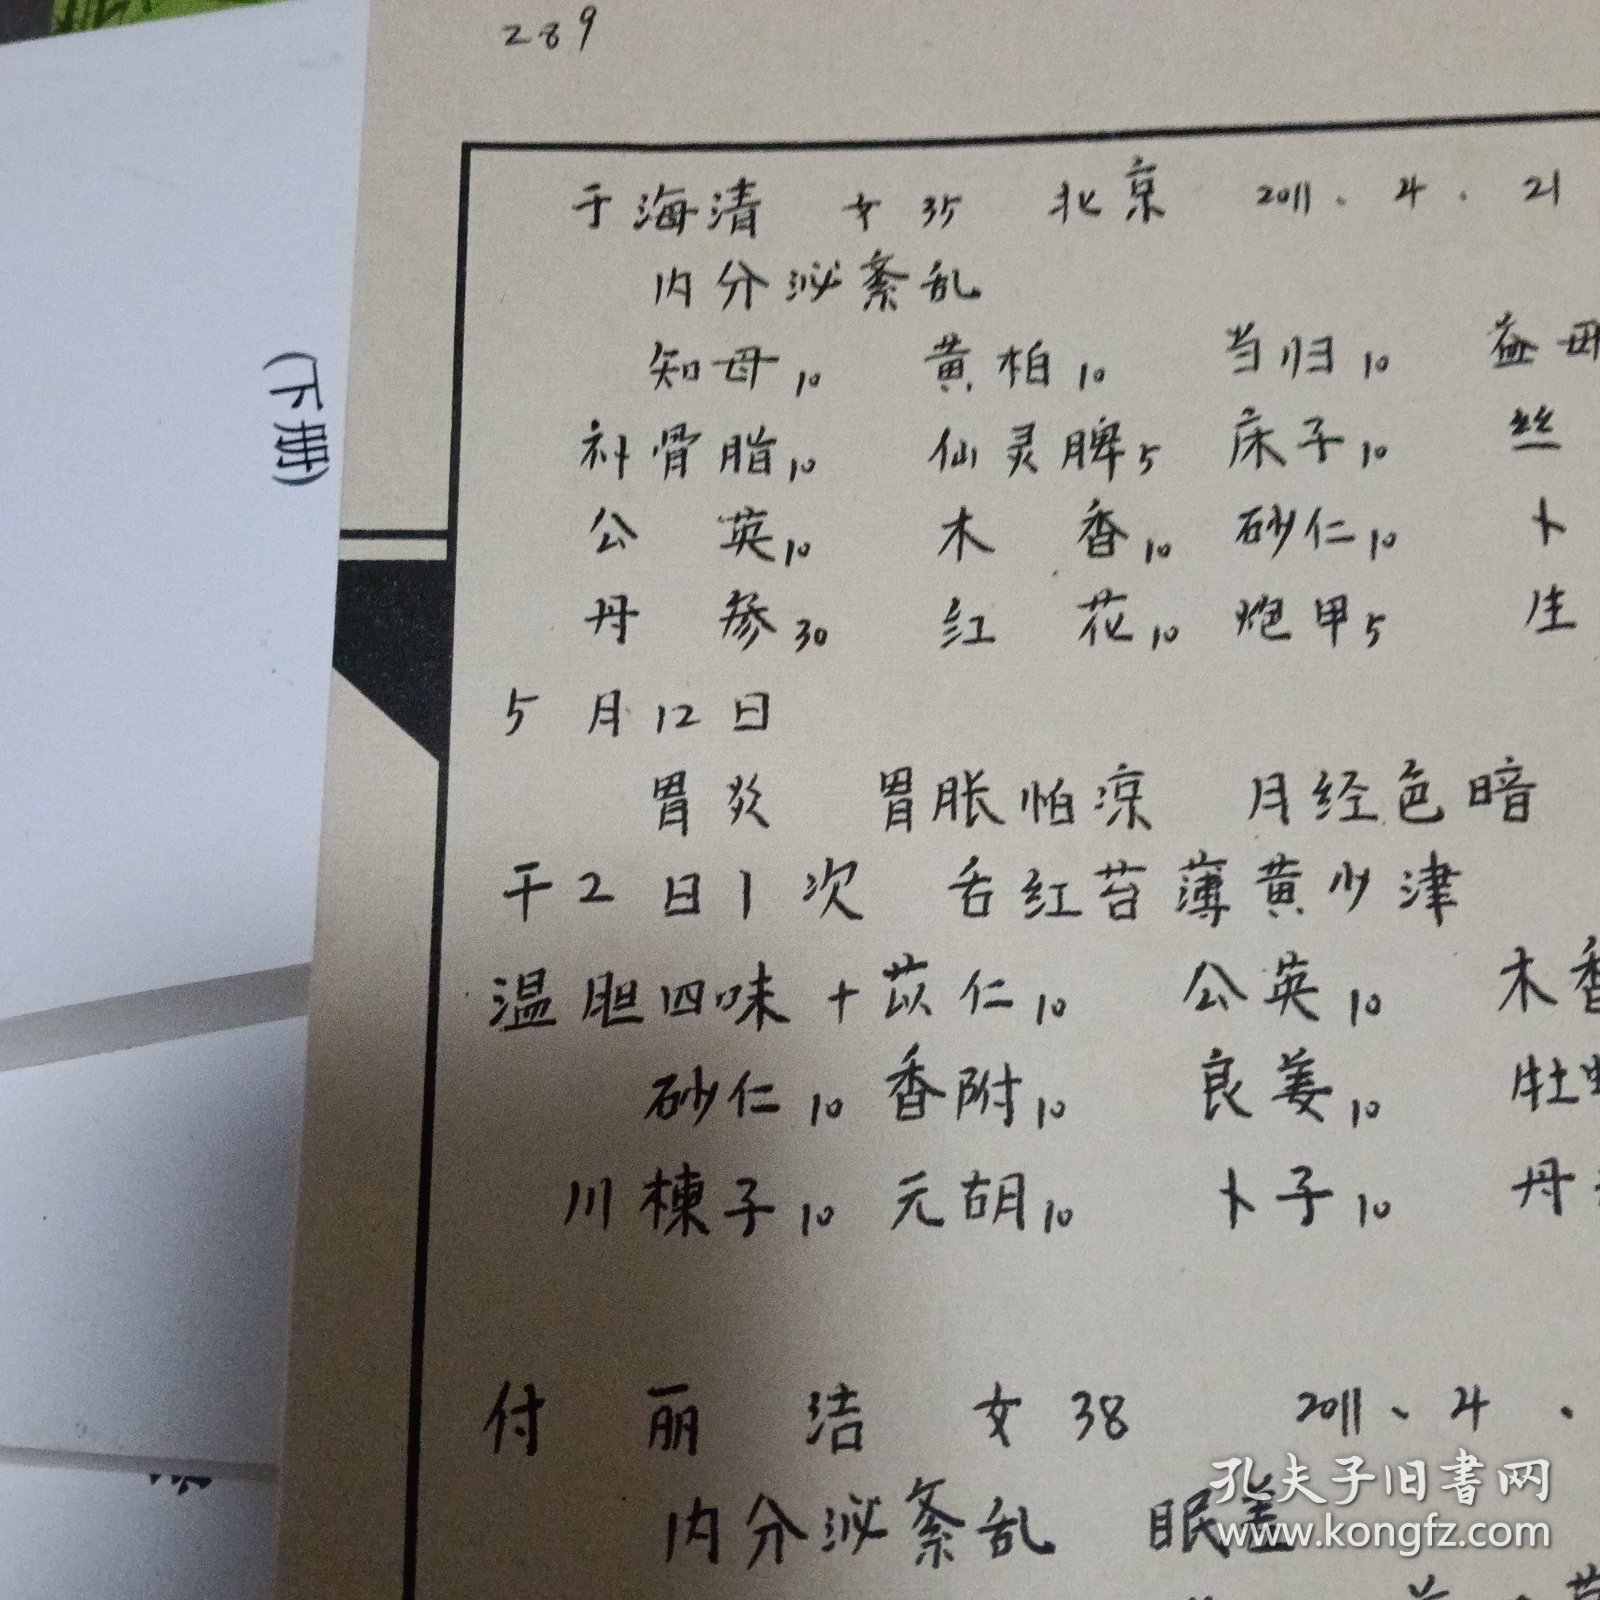 289
于海清 女35 北京 2011、4、21
内分泌紊乱
知母10 黄柏10 当归10 益母
补骨脂10 仙灵脾5 床子10 丝
公英10 木香10 砂仁10 卜
丹参30 红花10 炮甲5 生
5月12日
胃炎 胃胀怕凉 月经色暗
干2日1次 舌红苔薄黄少津
温胆四味+苡仁10 公英10 木香
砂仁10 香附10 良姜10 牡
川楝子10 元胡10 卜子10 丹
付丽洁 女38 2011、4、
内分泌紊乱 眠差
(下
孔夫子旧书网
www.kongfz.com